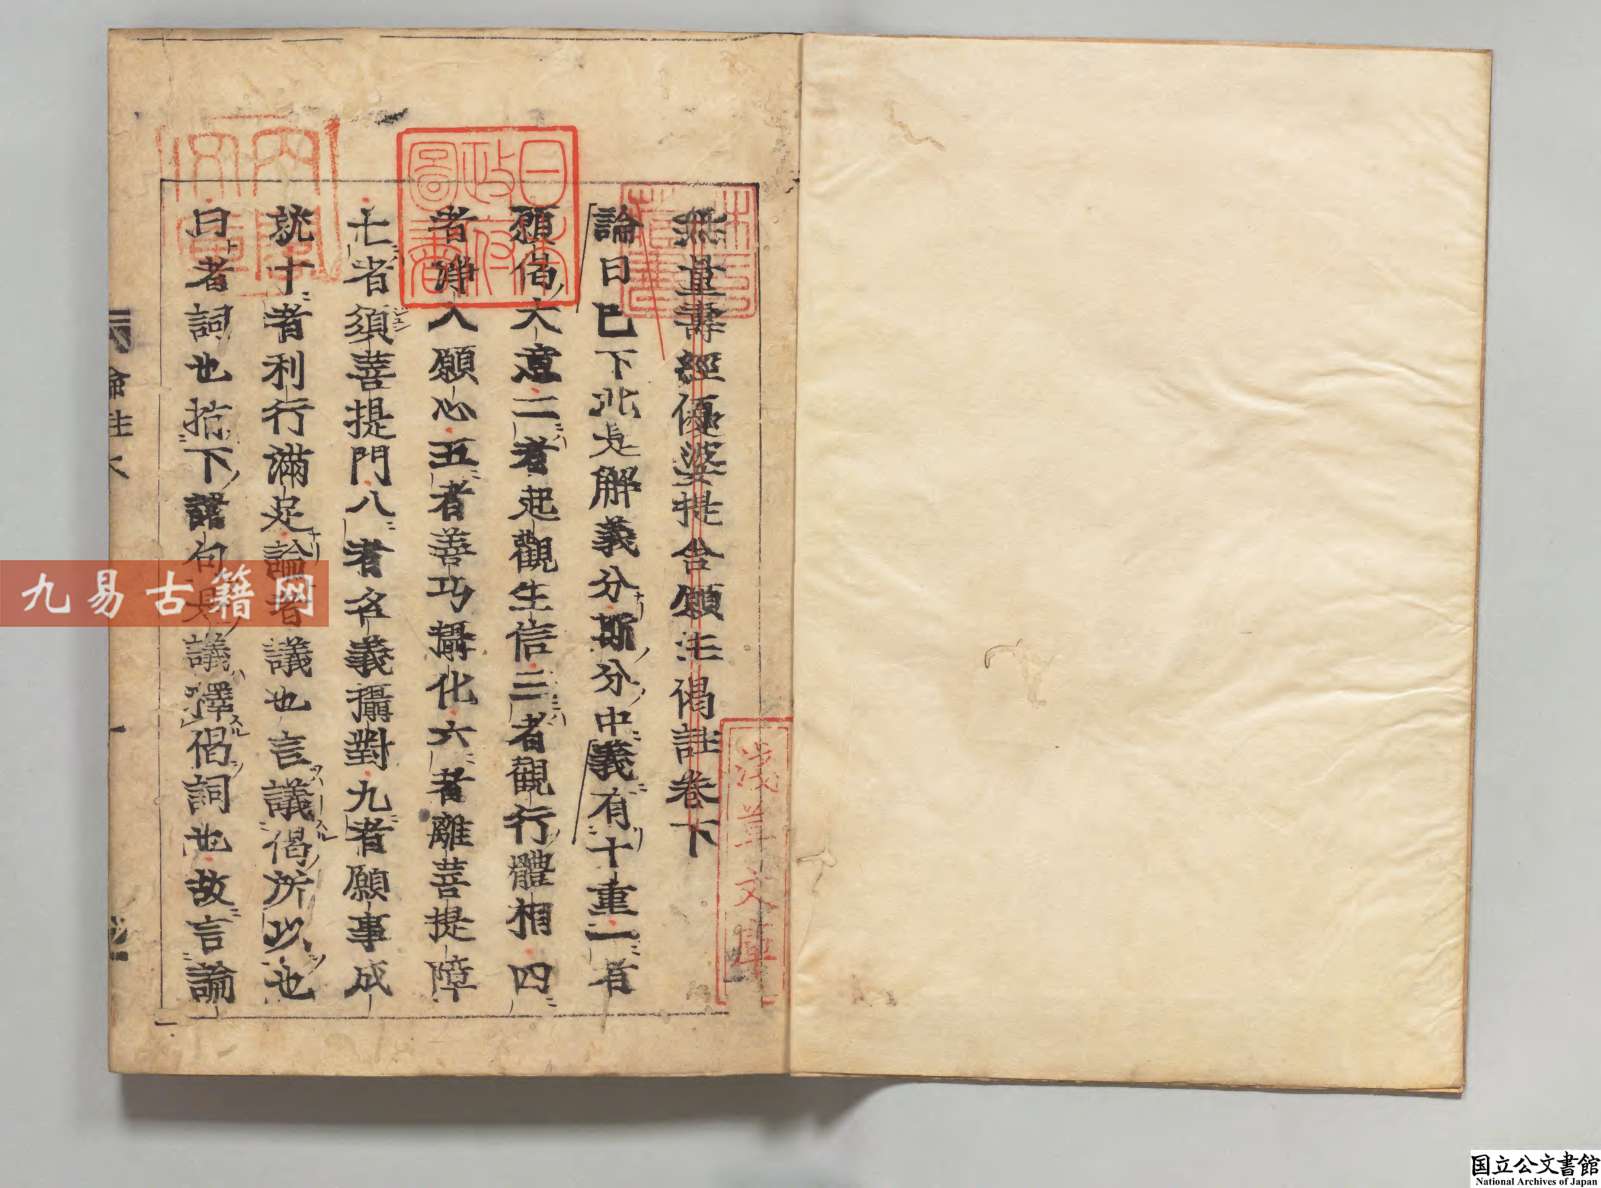 無量壽經優婆提舍願生偈註卷下
論曰已下此是解義分斯分中義有十重一者
願偈大意二者起觀生信三者觀行體相四
者淨入願心五者善巧攝化六者離菩提障
七者須菩提門八者名義攝對九者願事成
就十者利行滿足論者議也言議偈所以也
曰者詞也指下諸句是議釋偈詞也故言論
日本政府圖書
淺草文庫
九易古籍网
国立公文書館
National Archives of Japan